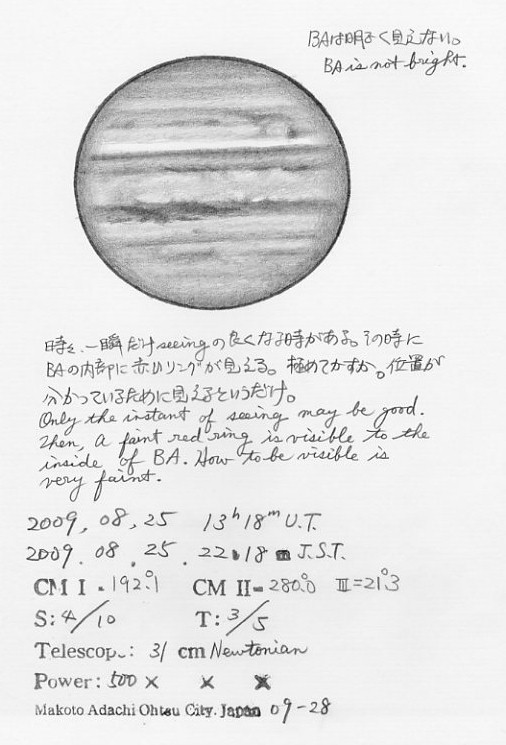 BAは明るく見えない。
BA is not bright.
時々、一瞬だけseeingの良くなる時がある。その時に
BAの内部に赤いリングが見える。極めてかすか。位置が
分かっているために見えるというだけ。
Only the instant of seeing may be good.
Then, a faint red ring is visible to the
inside of BA. How to be visible is
very faint.
2009, 08, 25 13h 18m U.T.
2009. 08. 25. 22 18 m J.S.T.
CM I = 192.°1 CM II = 280.°0 III = 21.°3
S: 4/10 T: 3/5
Telescop.: 31 cm Newtonian
Power: 500 × × ×
Makoto Adachi Ohtsu City. Japan 09-28